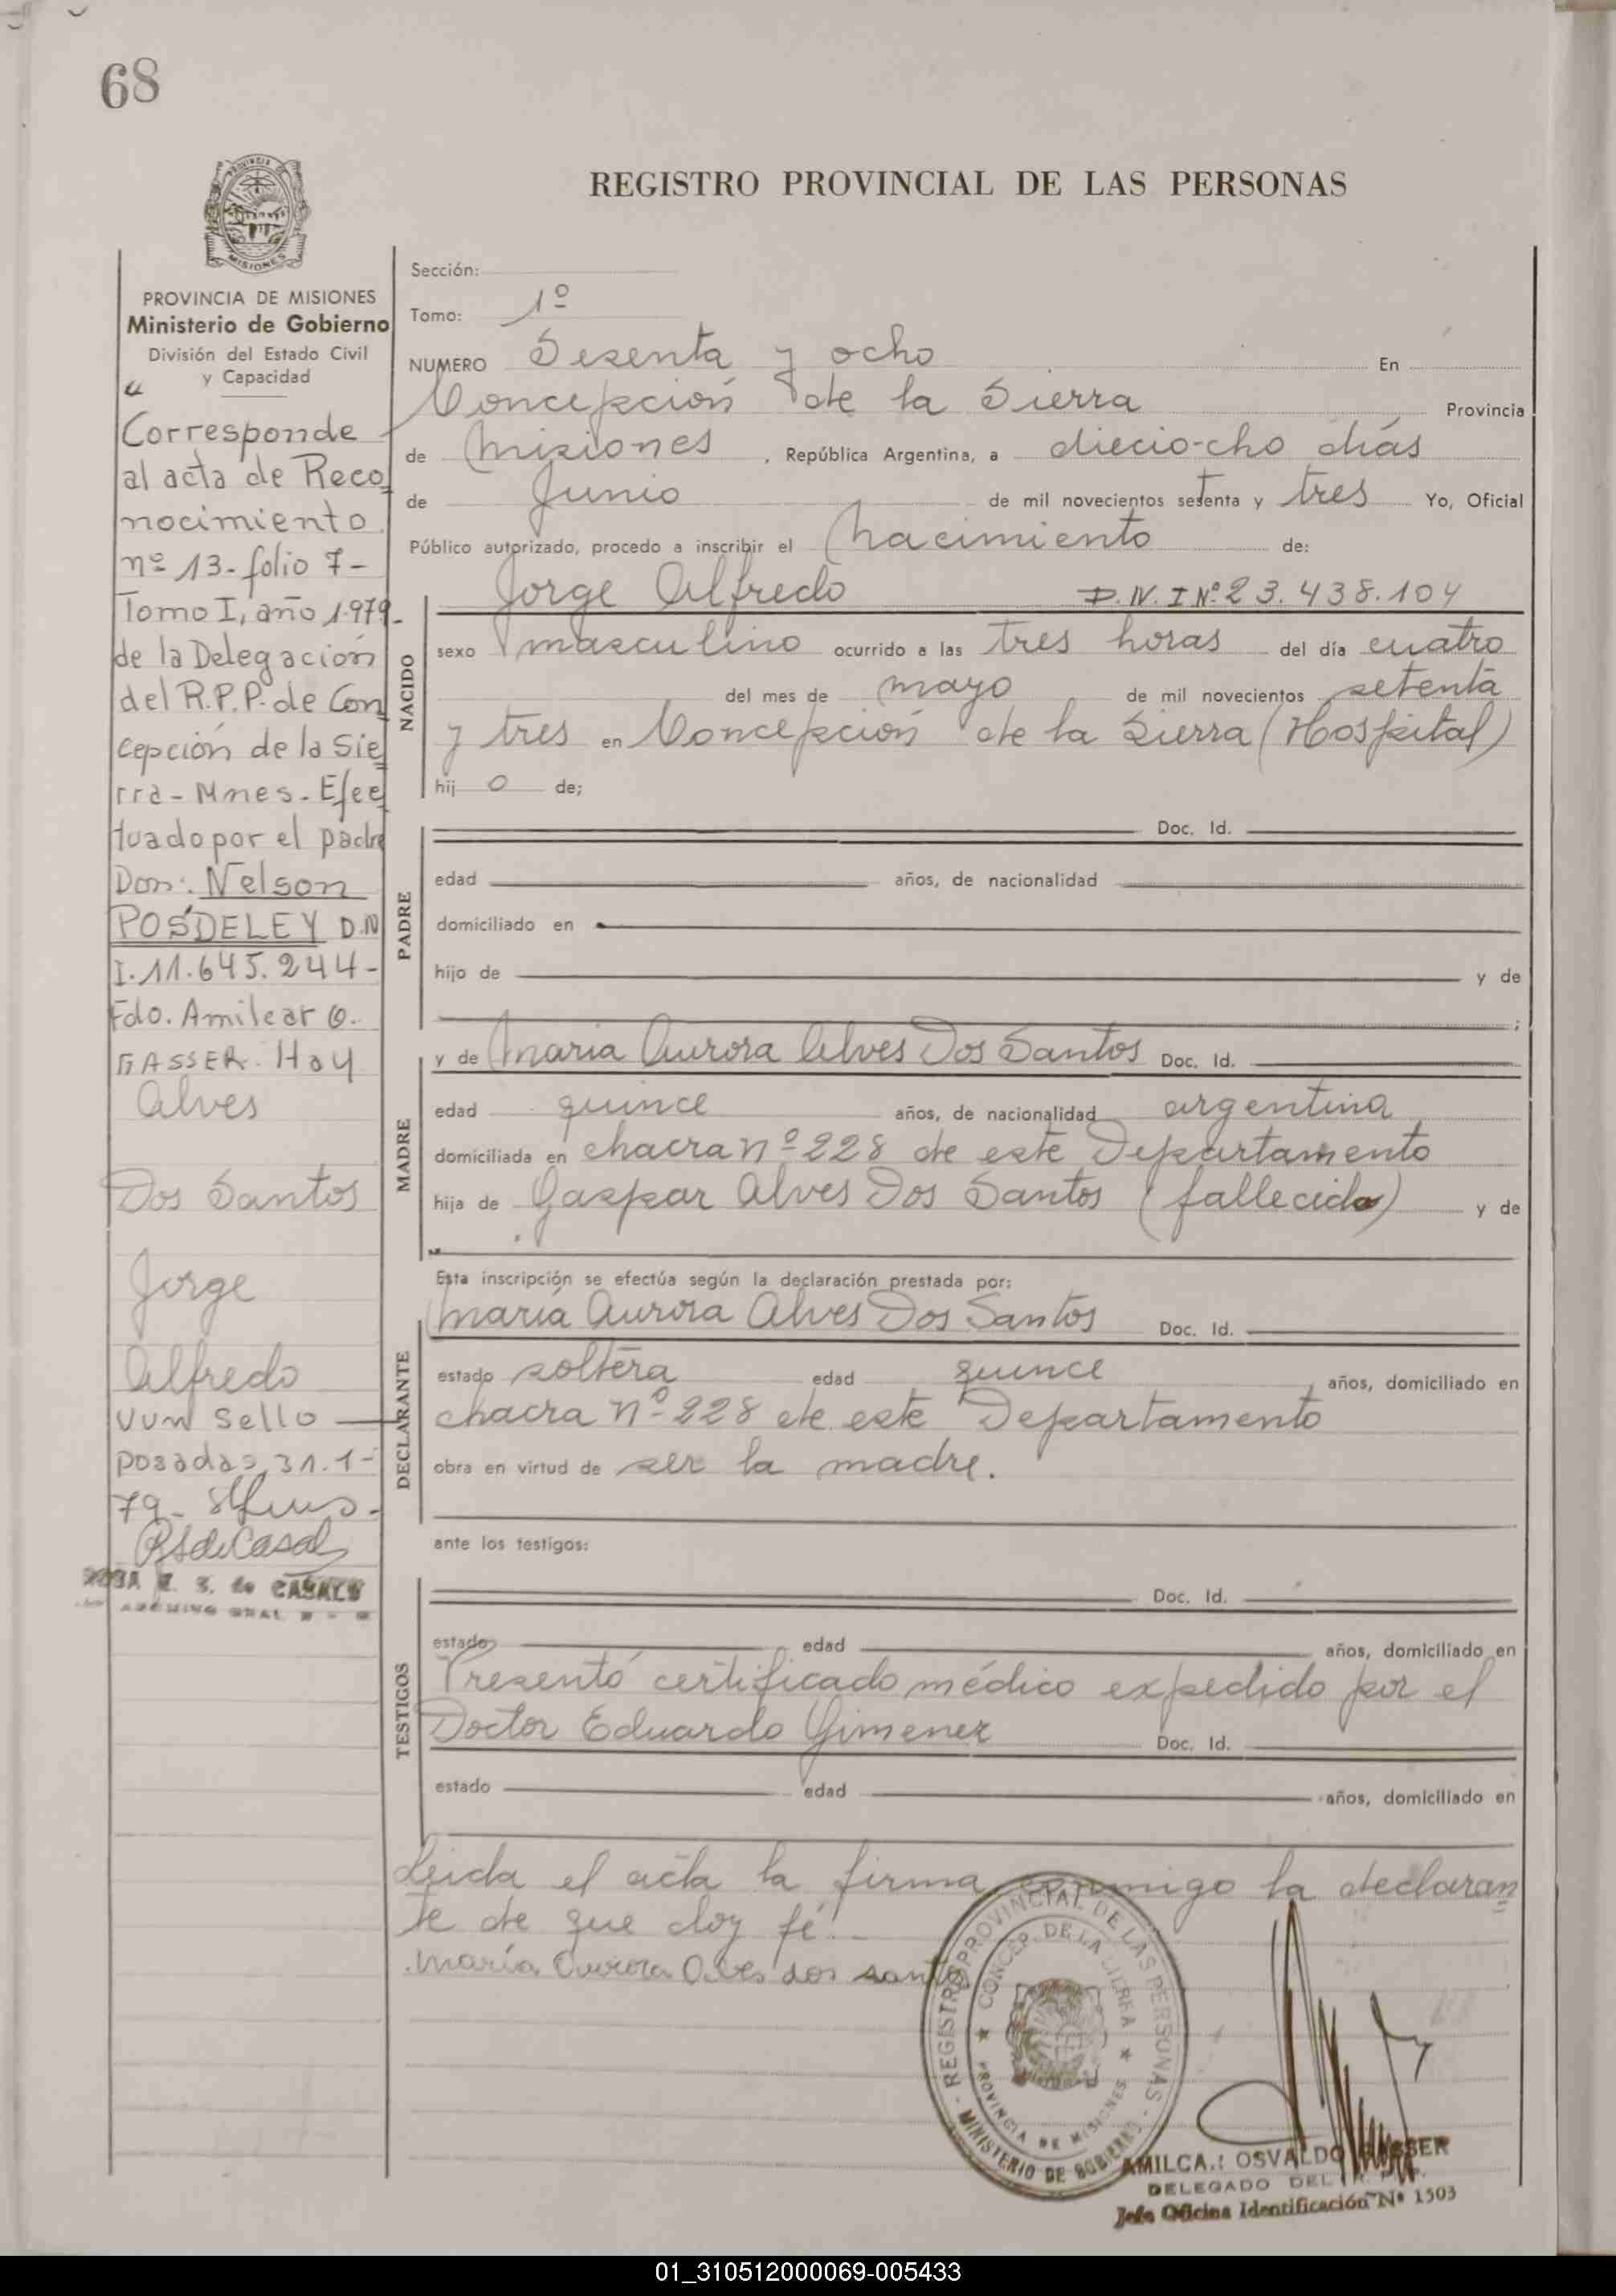 68
REGISTRO PROVINCIAL DE LAS PERSONAS
PROVINCIA DE MISIONES
Ministerio de Gobierno
División del Estado Civil
y Capacidad
"
Corresponde
al acta de Reco
nocimiento
nº 13-folio 7-
Tomo I, año 1.979-
de la Delegación
del R.P.P. de Con
cepción de la Sie
rra - Mnes. - Efec
tuado por el padre
Don: Nelson
POSDELEY D.N
I. 11.645.244-
Fdo. Amilcar O.
GASSER. Hay
Alves
Dos Santos
Jorge
Alfredo
un sello
posadas, 31-1-
79-
ROSA E. S. de CASALS
Sección:
Tomo: 1º
NUMERO Sesenta y ocho En
Concepción de la Sierra Provincia
de Misiones, República Argentina, a dieciocho días
de Junio de mil novecientos setenta y tres Yo, Oficial
Público autorizado, procedo a inscribir el nacimiento de:
NACIDO
Jorge Alfredo D.N.I Nº 23.438.104
sexo masculino ocurrido a las tres horas del día cuatro
del mes de mayo de mil novecientos setenta
y tres en Concepción de la Sierra (Hospital)
hij o de;
PADRE
Doc. Id.
edad años, de nacionalidad
domiciliado en
hijo de y de
;
MADRE
y de María Aurora Alves Dos Santos Doc. Id.
edad quince años, de nacionalidad argentina
domiciliada en chacra nº 228 de este Departamento
hija de Gaspar Alves Dos Santos (fallecido) y de
Esta inscripción se efectúa según la declaración prestada por:
DECLARANTE
María Aurora Alves Dos Santos Doc. Id.
estado soltera edad quince años, domiciliado en
chacra nº 228 de este Departamento
obra en virtud de ser la madre.
ante los testigos:
TESTIGOS
Doc. Id.
estado edad años, domiciliado en
Presentó certificado médico expedido por el
Doctor Eduardo Gimenez Doc. Id.
estado edad años, domiciliado en
Leida el acta la firma conmigo la declaran
te de que doy fé.-
María Aurora Alves dos santos
REGISTRO PROVINCIAL DE LAS PERSONAS - MINISTERIO DE GOBIERNO
CONCEP. DE LA SIERRA ★ PROVINCIA DE MISIONES ★
AMILCAR OSVALDO GASSER
DELEGADO DEL R. P.
Jefe Oficina Identificación Nº 1503
01_310512000069-005433